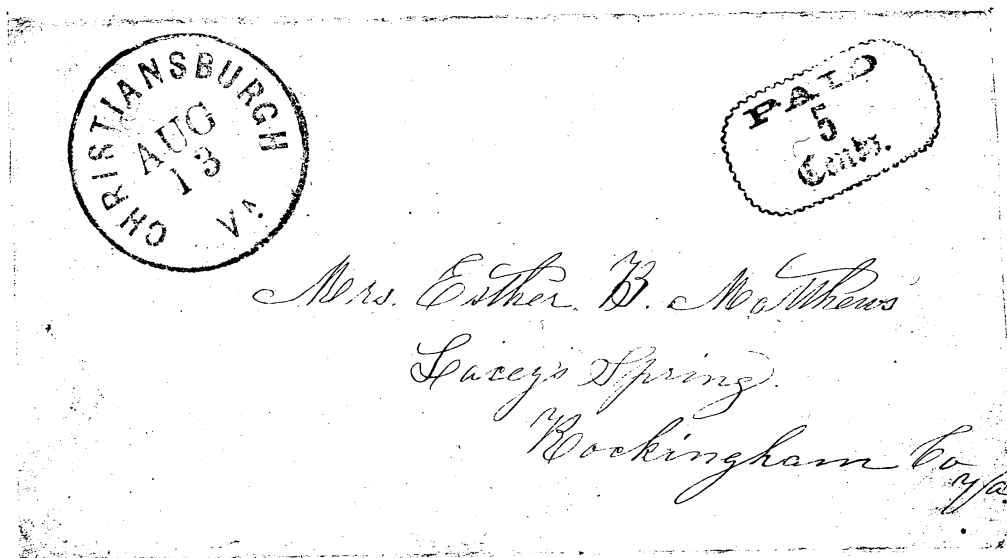 CHRISTIANSBURGH
AUG
13
VA.
PAID
5
Cents.
Mrs. Esther B. Matthews
Lacey's Spring.
Rockingham Co
Va.